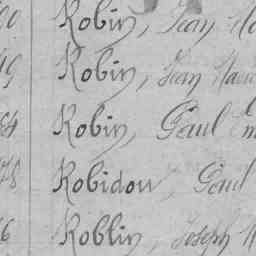 Robin, Jean
Robin, Jean Marie
Robin, Paul Em
Robidou, Paul
Roblin, Joseph M